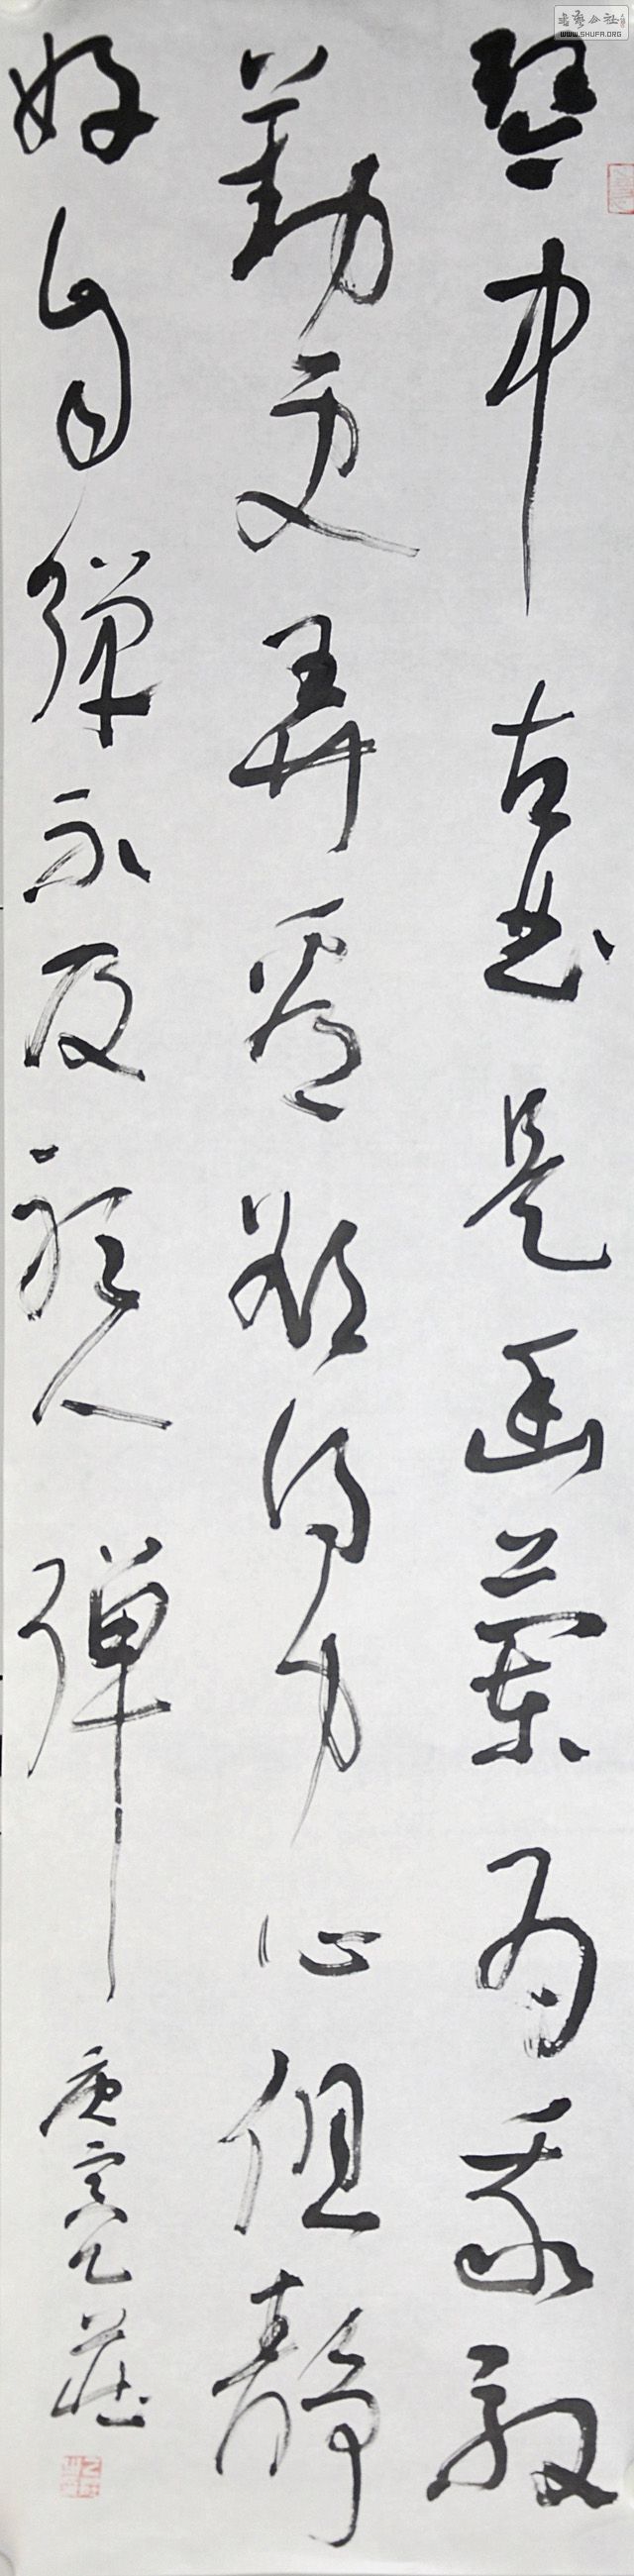 琴中古曲是幽蘭為我殷
勤更弄看欲得身心俱靜
好自彈不及聽人彈
庚寅乙莊
書藝公社
WWW.SHUFA.ORG